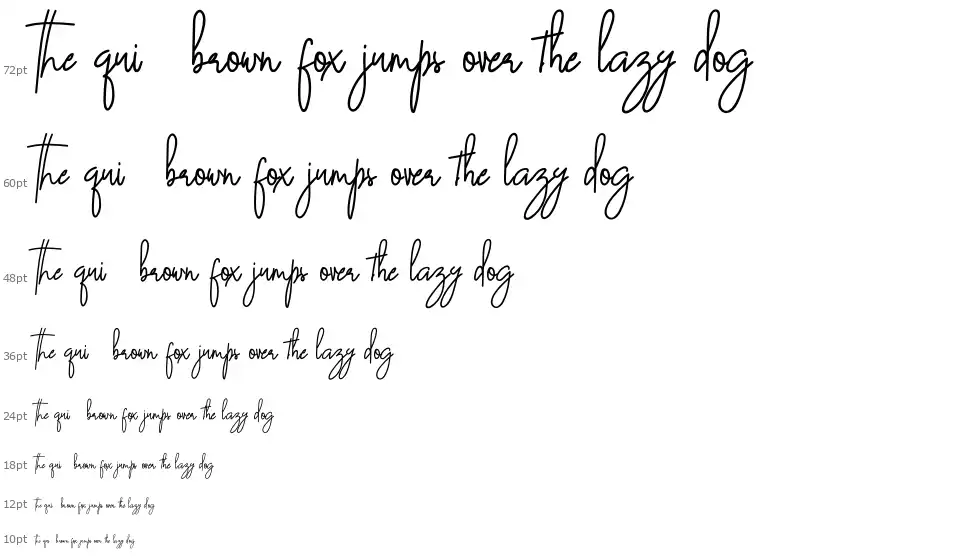 72pt the qui brown fox jumps over the lazy dog
60pt the qui brown fox jumps over the lazy dog
48pt the qui brown fox jumps over the lazy dog
36pt the qui brown fox jumps over the lazy dog
24pt the qui brown fox jumps over the lazy dog
18pt the qui brown fox jumps over the lazy dog
12pt the qui brown fox jumps over the lazy dog
10pt the qui brown fox jumps over the lazy dog